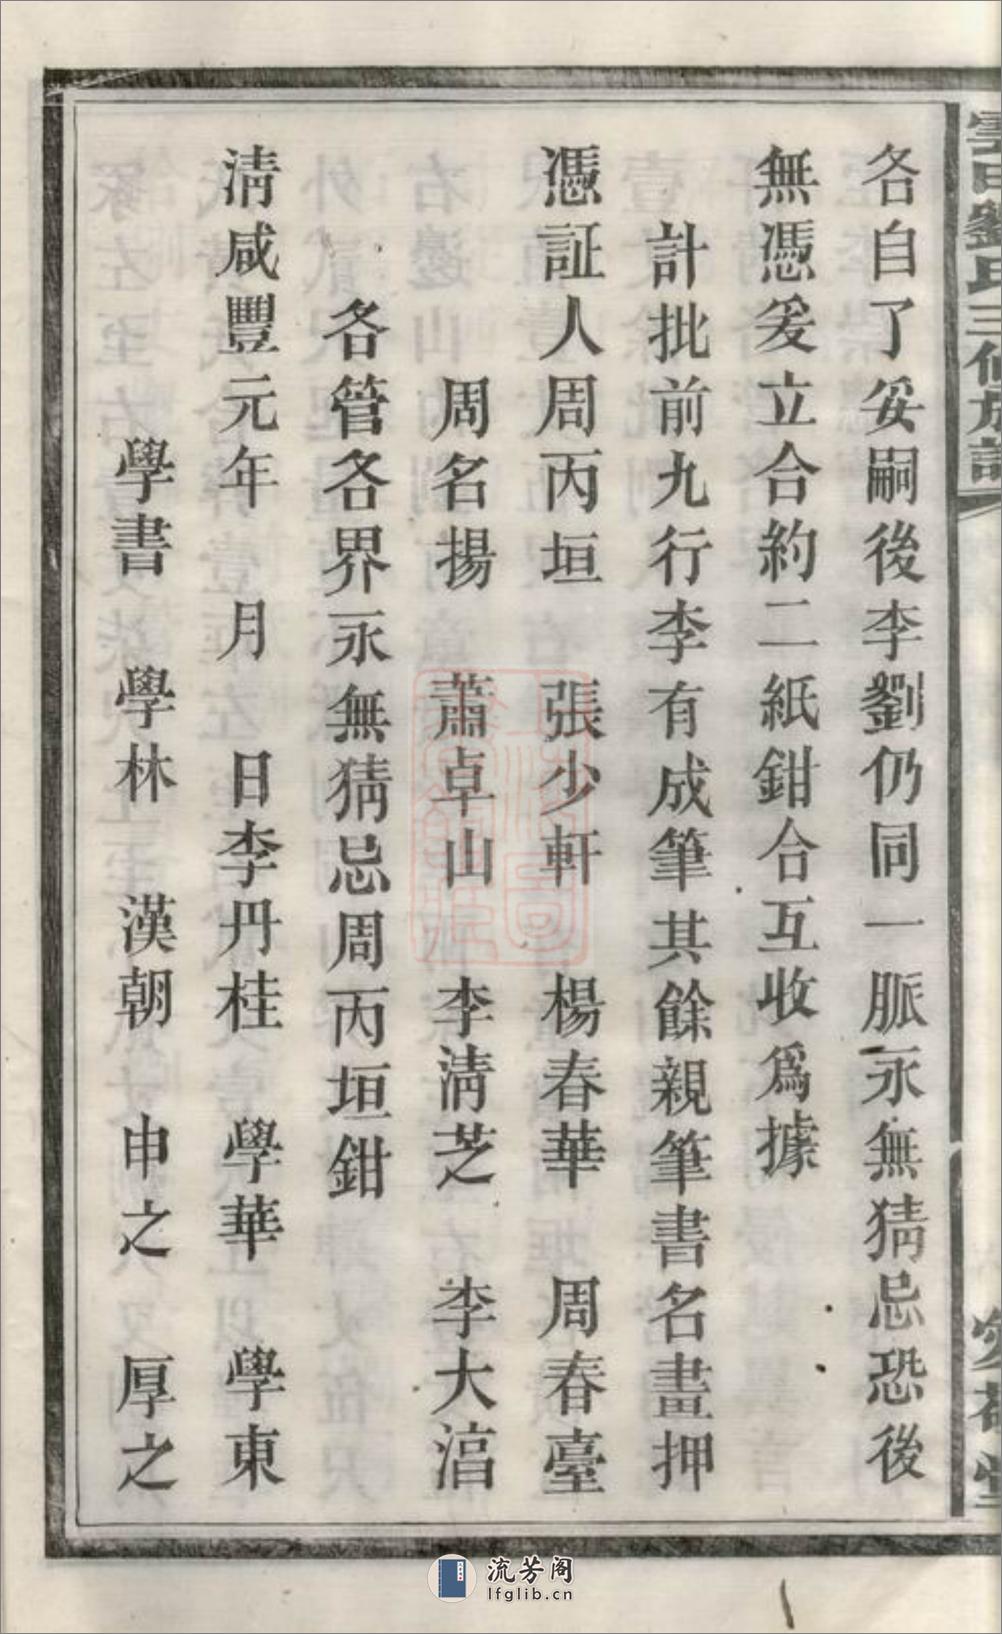 各自了妥嗣後李劉仍同一脈永無猜忌恐後
無憑爰立合約二紙鉗合互收爲據
計批前九行李有成筆其餘親筆書名畫押
憑証人周丙垣 張少軒 楊春華 周春臺
周名揚 蕭卓山 李清芝 李大涾
各管各界永無猜忌周丙垣鉗
清咸豐元年 月 日李丹桂 學華 學東
學書 學林 漢朝 申之 厚之
流芳阁
lfglib.cn